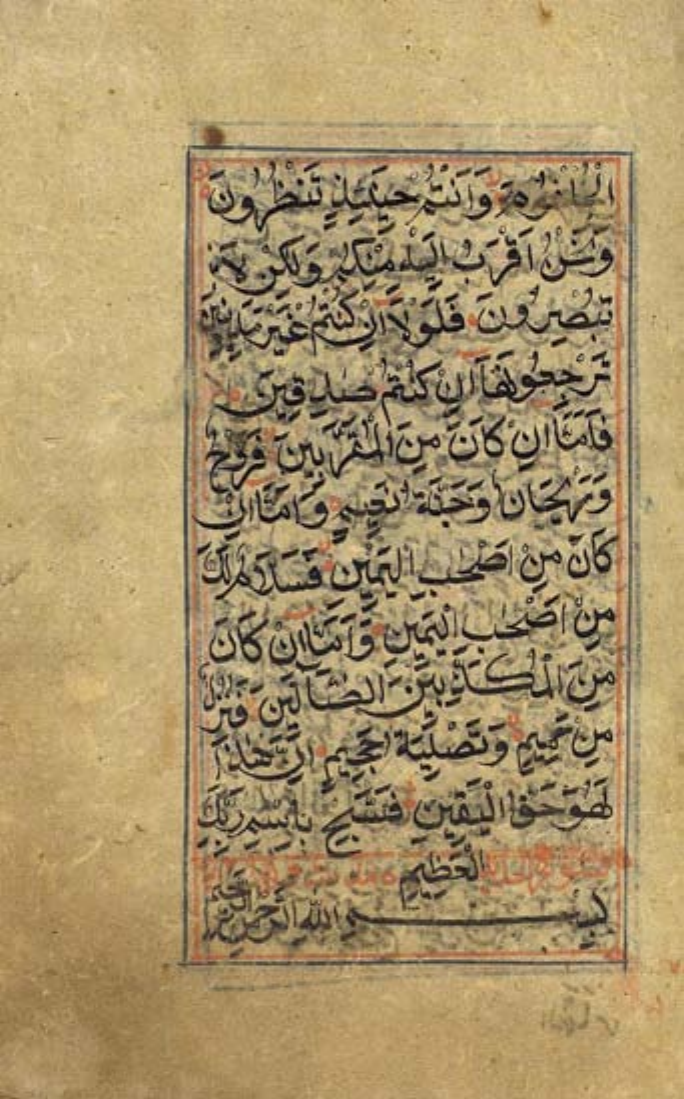 الحلقوم وَاَنْتُمْ حِينَئِذٍ تَنْظُرُونَ
وَنَحْنُ اَقْرَبُ اِلَيْهِ مِنْكُمْ وَلٰكِنْ لَا
تُبْصِرُونَ فَلَوْلَا اِنْ كُنْتُمْ غَيْرَ مَدِينِينَ
تَرْجِعُونَهَا اِنْ كُنْتُمْ صٰدِقِينَ
فَاَمَّا اِنْ كَانَ مِنَ الْمُقَرَّبِينَ فَرَوْحٌ
وَرَيْحَانٌ وَجَنَّةُ نَعِيمٍ وَاَمَّا اِنْ
كَانَ مِنْ اَصْحٰبِ الْيَمِينِ فَسَلَامٌ لَكَ
مِنْ اَصْحٰبِ الْيَمِينِ وَاَمَّا اِنْ كَانَ
مِنَ الْمُكَذِّبِينَ الضَّالِّينَ فَنُزُلٌ
مِنْ حَمِيمٍ وَتَصْلِيَةُ جَحِيمٍ اِنَّ هٰذَا
لَهُوَ حَقُّ الْيَقِينِ فَسَبِّحْ بِاسْمِ رَبِّكَ
الْعَظِيمِ
بِسْمِ اللّٰهِ الرَّحْمٰنِ الرَّحِيمِ